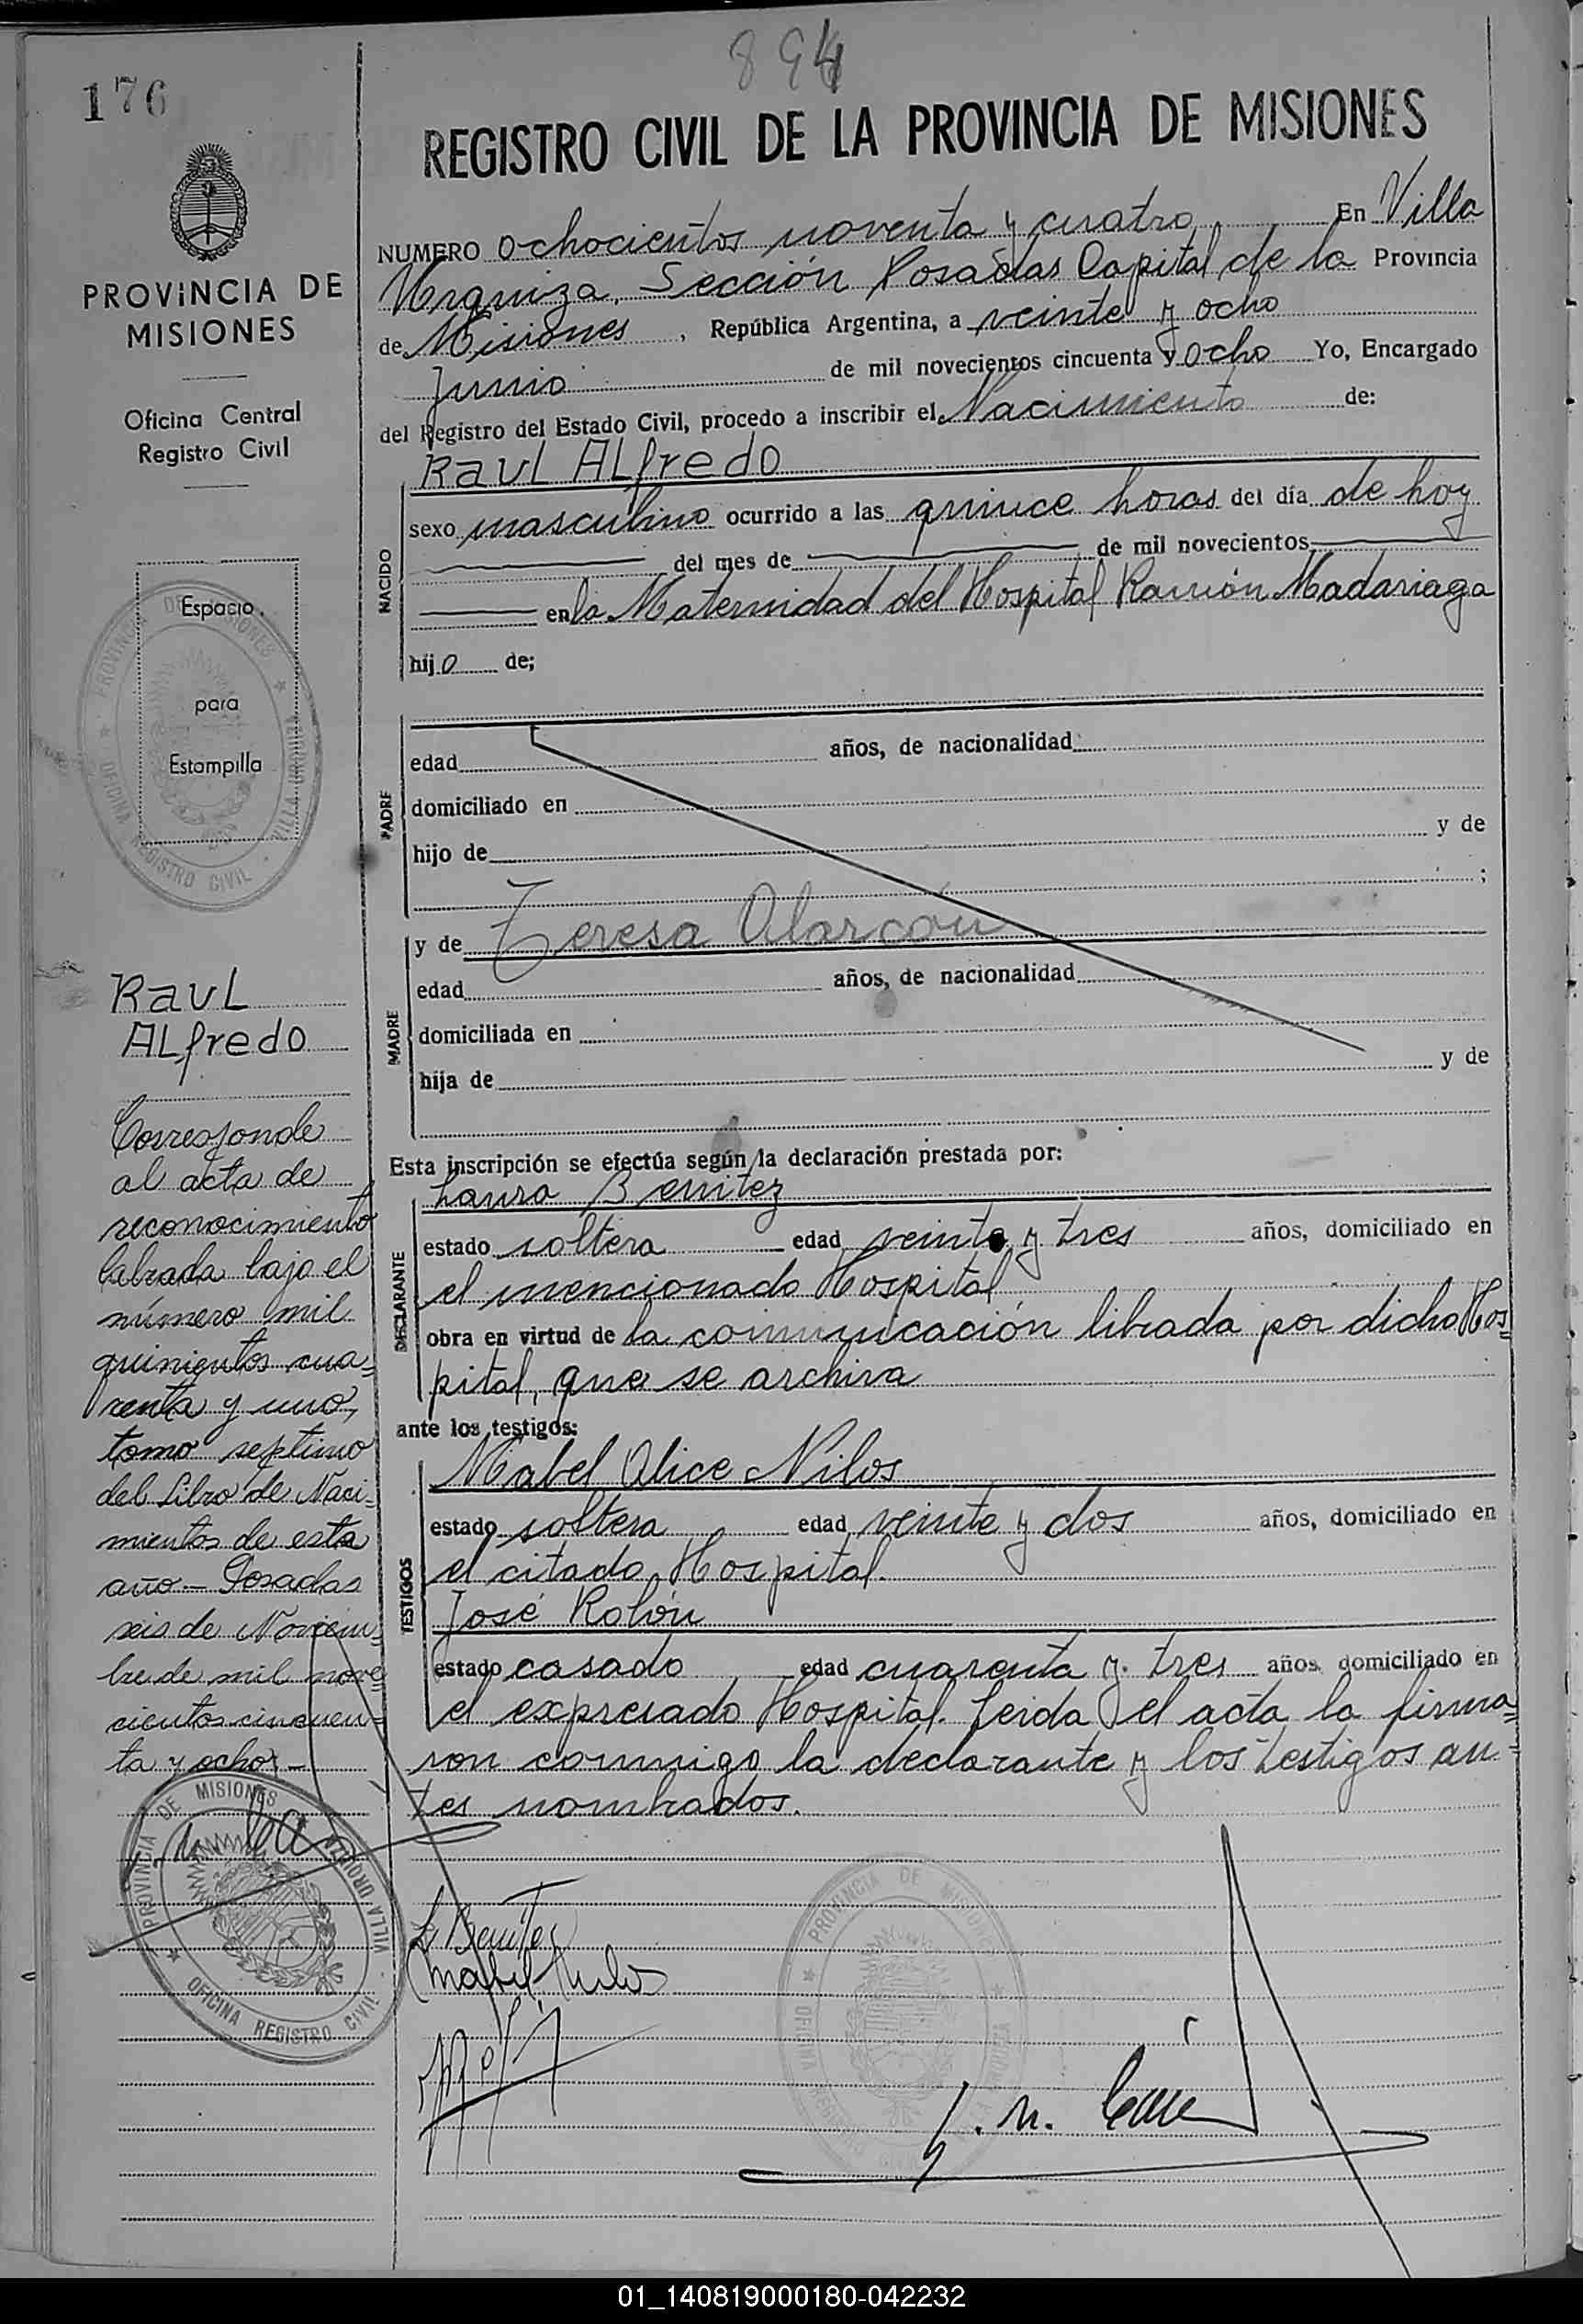 894
176
REGISTRO CIVIL DE LA PROVINCIA DE MISIONES
PROVINCIA DE
MISIONES
Oficina Central
Registro Civil
Espacio
para
Estampilla
PROVINCIA DE MISIONES
OFICINA REGISTRO CIVIL
VILLA URQUIZA
NUMERO ochocientos noventa y cuatro. En Villa
Urquiza, Sección Posadas Capital de la Provincia
de Misiones, República Argentina, a veinte y ocho
Junio de mil novecientos cincuenta y ocho Yo, Encargado
del Registro del Estado Civil, procedo a inscribir el Nacimiento de:
Raul Alfredo
NACIDO
sexo masculino ocurrido a las quince horas del día de hoy
del mes de de mil novecientos
en la Maternidad del Hospital Ramón Madariaga
hijo de;
PADRE
edad años, de nacionalidad
domiciliado en
hijo de y de
;
MADRE
y de Teresa Alarcón
edad años, de nacionalidad
domiciliada en
hija de y de
Esta inscripción se efectúa según la declaración prestada por:
DECLARANTE
Laura Benitez
estado soltera edad veinte y tres años, domiciliado en
el mencionado Hospital
obra en virtud de la comunicación librada por dicho Hos=
pital, que se archiva
ante los testigos:
TESTIGOS
Mabel Alice Nilos
estado soltera edad veinte y dos años, domiciliado en
el citado Hospital.
José Rolón
estado casado edad cuarenta y tres años domiciliado en
el expresado Hospital. Leida el acta la firma=
ron conmigo la declarante y los testigos an=
tes nombrados.
Raul
Alfredo
Corresponde
al acta de
reconocimiento
labrada bajo el
número mil
quinientos cua=
renta y uno,
tomo septimo
del Libro de Naci=
mientos de este
año.- Posadas
seis de Noviem=
bre de mil nove
cientos cincuen=
ta y ocho.-
PROVINCIA DE MISIONES
OFICINA REGISTRO CIVIL
VILLA URQUIZA
L Benitez
Mabel Nilos
PROVINCIA DE MISIONES
OFICINA REGISTRO CIVIL
01_140819000180-042232